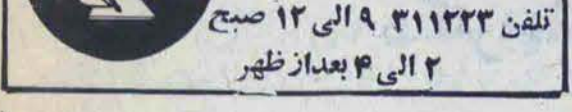 تلفن ۳۱۱۲۲۳ ۹ الی ۱۲ صبح
۲ الی ۴ بعداز ظهر